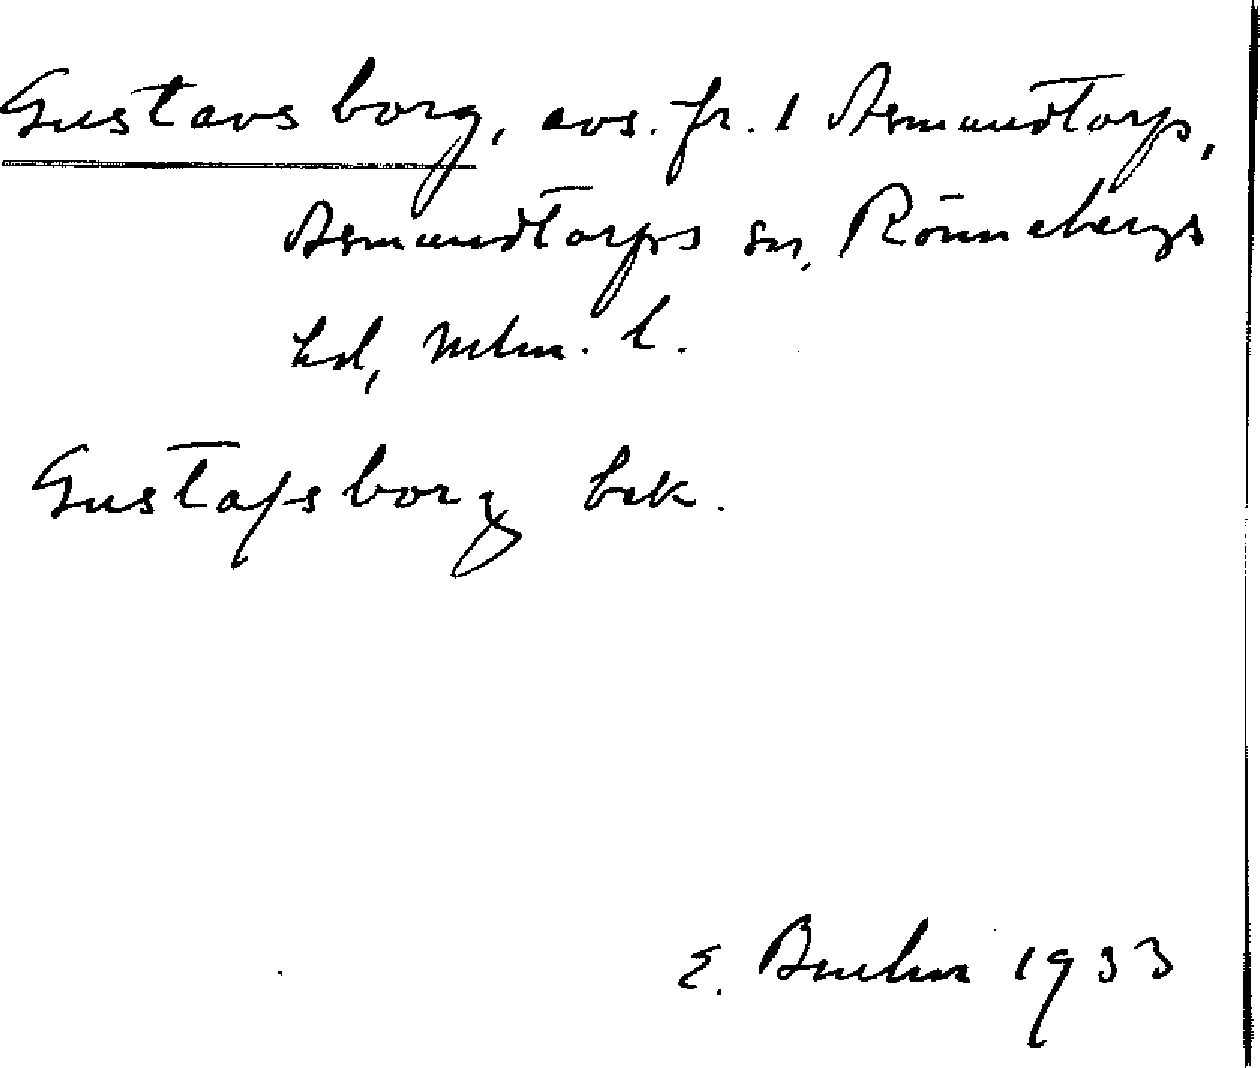 Gustavsborg, avs. fr. 1 Asmundtorp,
Asmundtorps sn, Rönnebergs
hd, Mlm. l.
Gustafsborg bek.
E. 1933